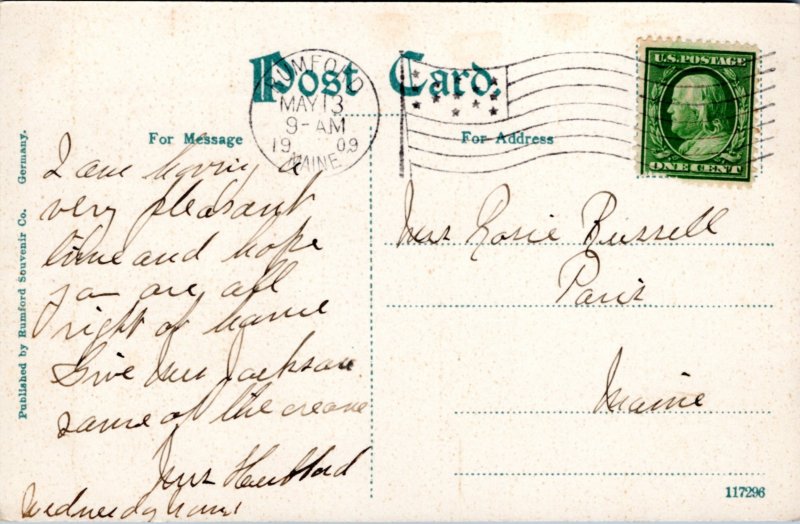 Post Card.
RUMFORD
MAY 13
9-AM
19 09
MAINE
U.S. POSTAGE
ONE CENT
For Message
For Address
I am having a
very pleasant
time and hope
are all
right of
Give Mrs Jackson
some of the
Mrs Hubbard
Mrs Rosie Russell
Paris
Maine
Published by Rumford Souvenir Co. Germany.
117296